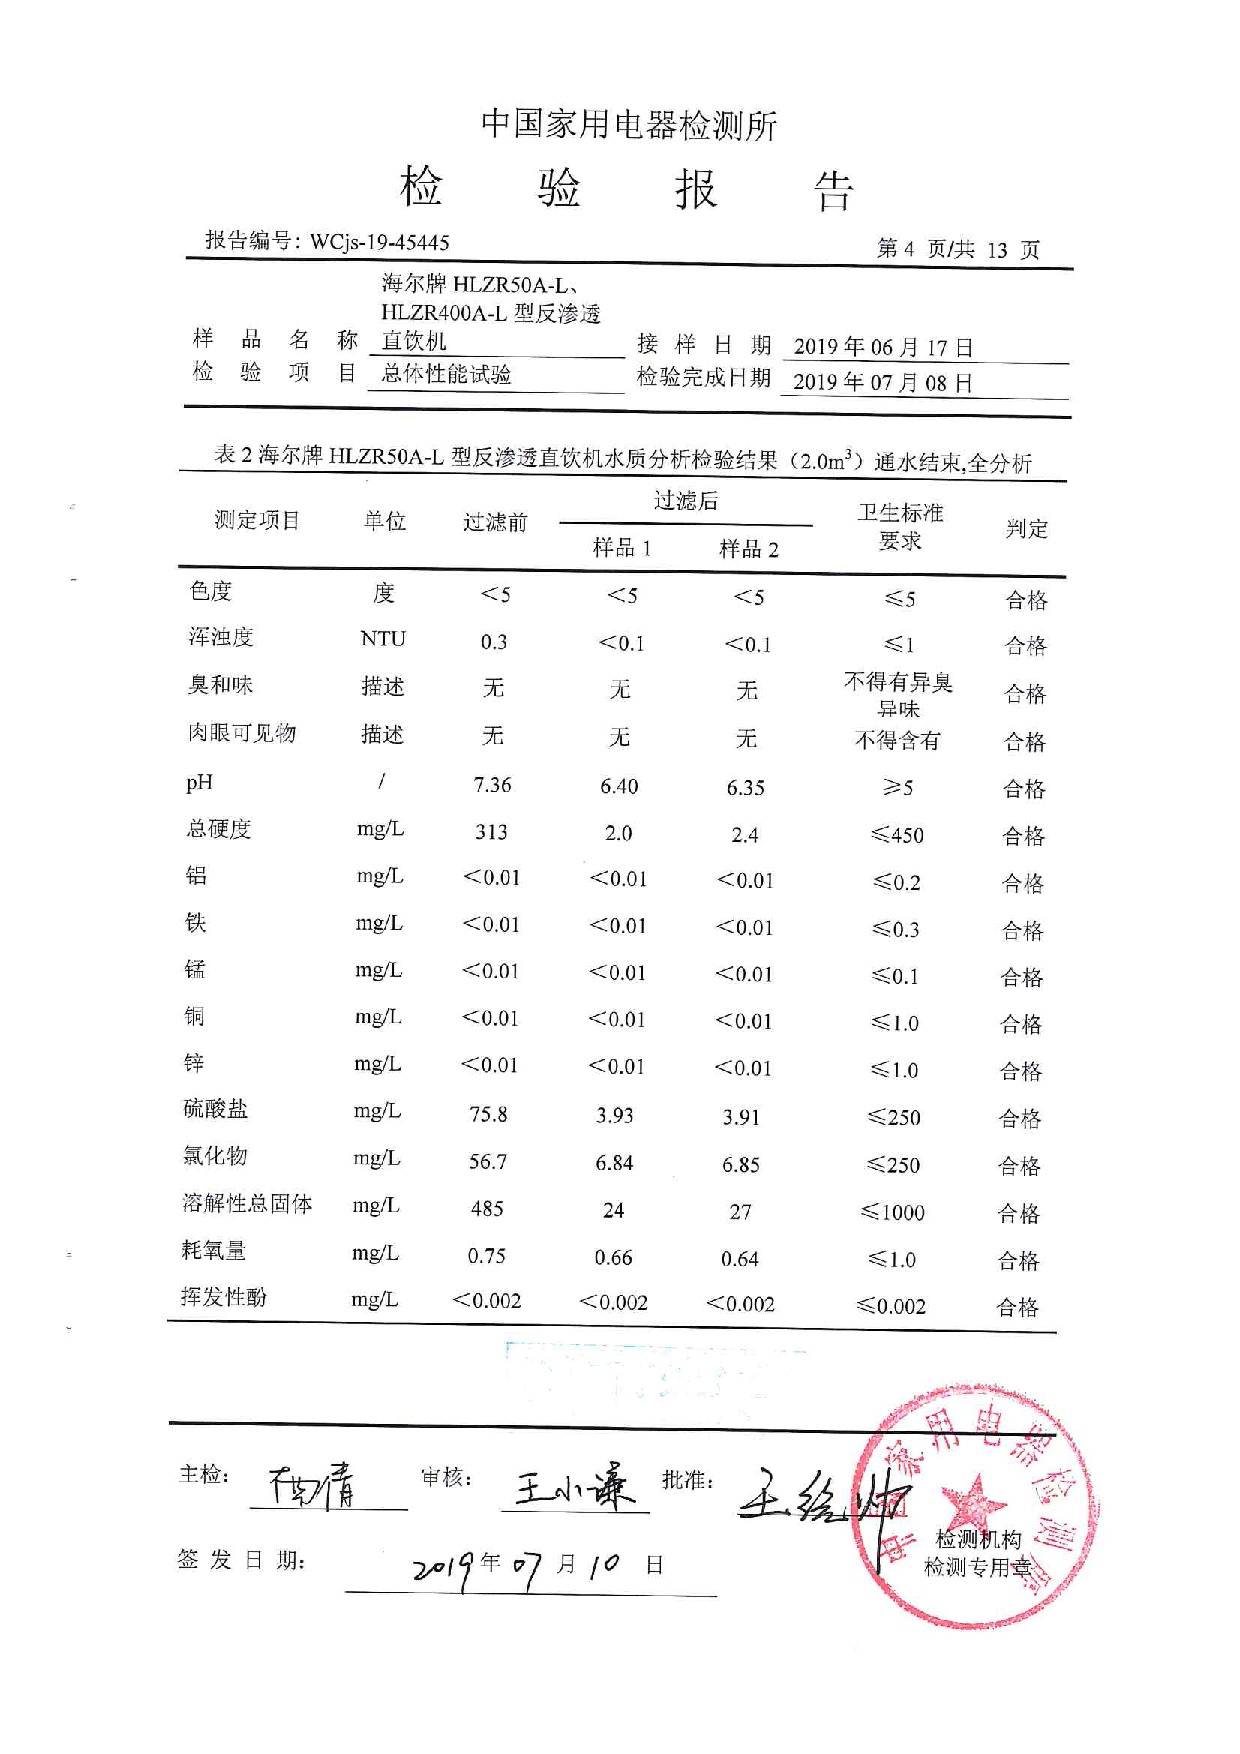 中国家用电器检测所
检 验 报 告
报告编号：WCjs-19-45445
第 4 页/共 13 页
海尔牌 HLZR50A-L、
HLZR400A-L 型反渗透
样 品 名 称 直饮机 接 样 日 期 2019 年 06 月 17 日
检 验 项 目 总体性能试验 检验完成日期 2019 年 07 月 08 日
表 2 海尔牌 HLZR50A-L 型反渗透直饮机水质分析检验结果（2.0m³）通水结束,全分析
测定项目 单位 过滤前 过滤后 卫生标准要求 判定
样品 1 样品 2
色度 度 ＜5 ＜5 ＜5 ≤5 合格
浑浊度 NTU 0.3 ＜0.1 ＜0.1 ≤1 合格
臭和味 描述 无 无 无 不得有异臭异味 合格
肉眼可见物 描述 无 无 无 不得含有 合格
pH / 7.36 6.40 6.35 ≥5 合格
总硬度 mg/L 313 2.0 2.4 ≤450 合格
铝 mg/L ＜0.01 ＜0.01 ＜0.01 ≤0.2 合格
铁 mg/L ＜0.01 ＜0.01 ＜0.01 ≤0.3 合格
锰 mg/L ＜0.01 ＜0.01 ＜0.01 ≤0.1 合格
铜 mg/L ＜0.01 ＜0.01 ＜0.01 ≤1.0 合格
锌 mg/L ＜0.01 ＜0.01 ＜0.01 ≤1.0 合格
硫酸盐 mg/L 75.8 3.93 3.91 ≤250 合格
氯化物 mg/L 56.7 6.84 6.85 ≤250 合格
溶解性总固体 mg/L 485 24 27 ≤1000 合格
耗氧量 mg/L 0.75 0.66 0.64 ≤1.0 合格
挥发性酚 mg/L ＜0.002 ＜0.002 ＜0.002 ≤0.002 合格
主检： 审核： 王小谦 批准：
中国家用电器检测所
检测机构
检测专用章
签 发 日 期： 2019 年 07 月 10 日